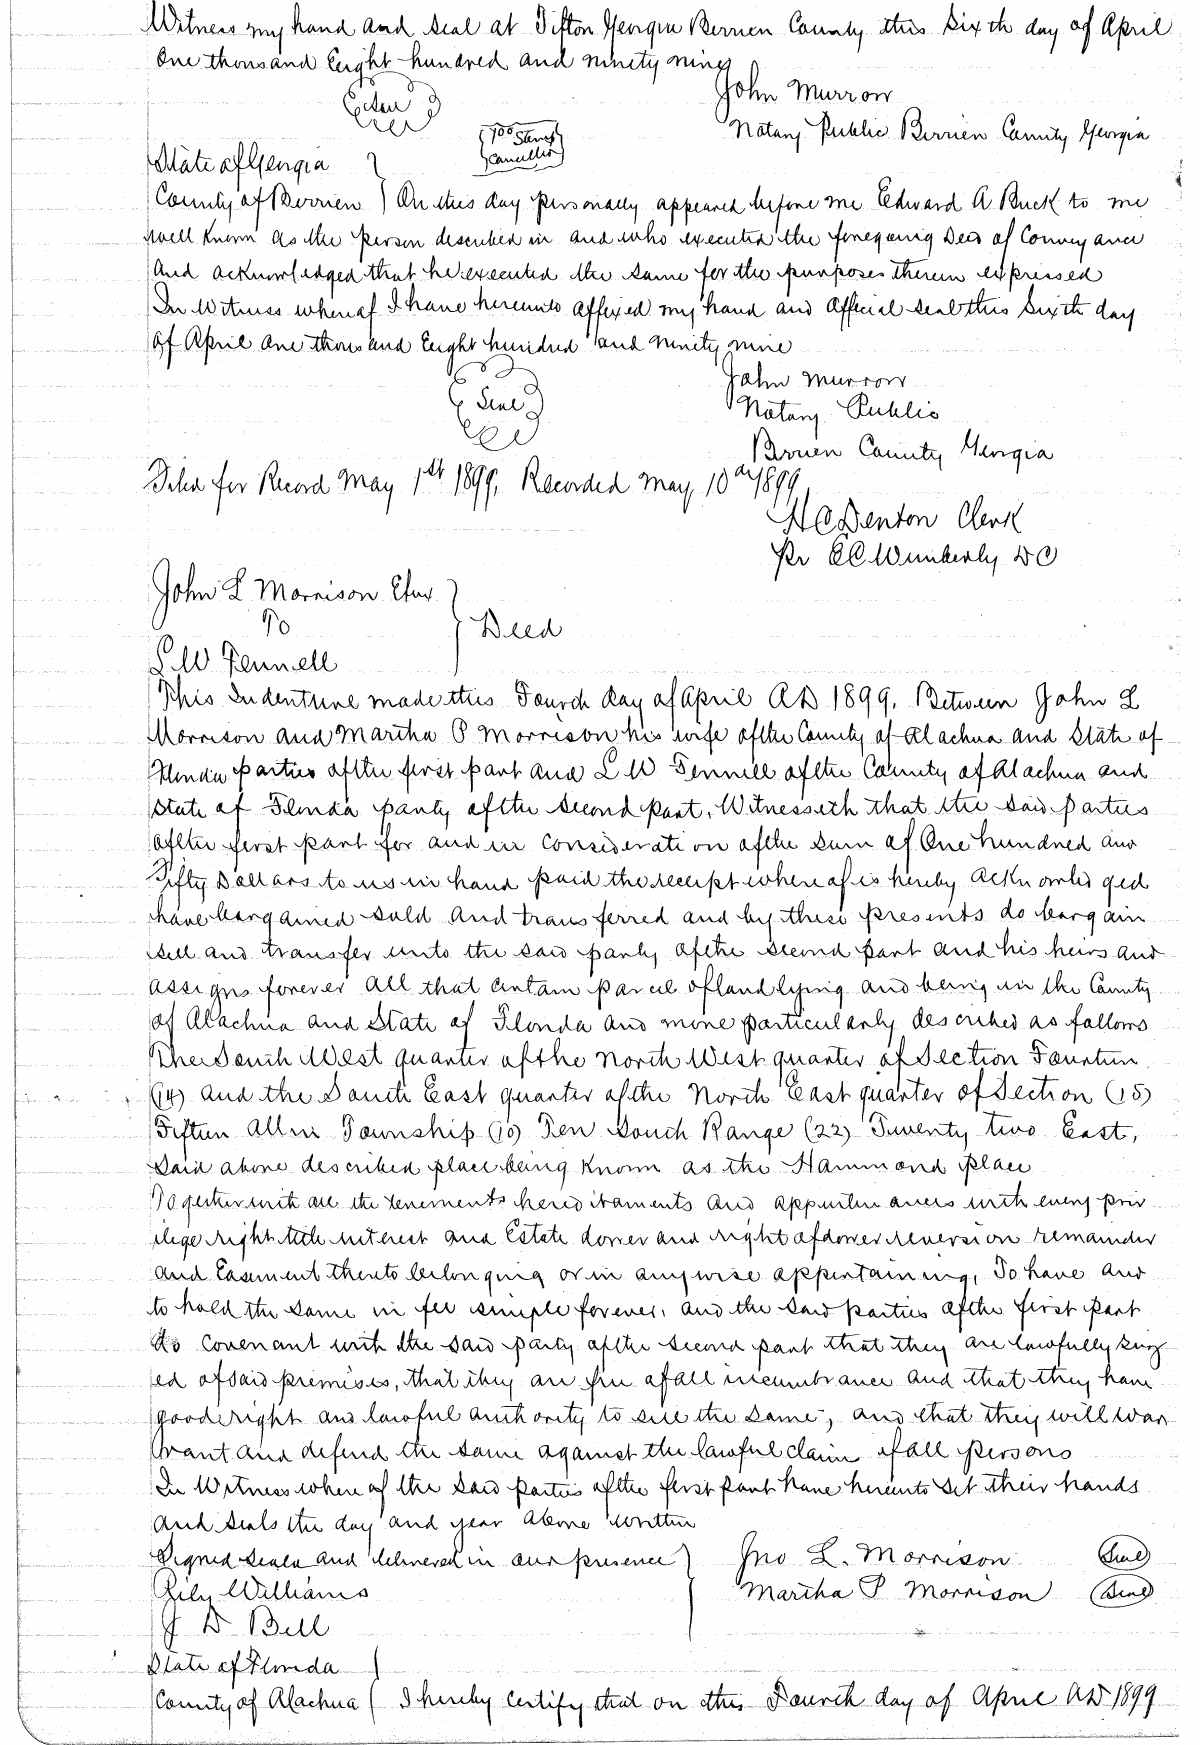 Witness my hand and seal at Tifton Georgia Berrien County this Sixth day of April
One thousand Eight hundred and ninety nine
John Murrow
Seal
Notary Public Berrien County Georgia
Stamps
Cancelled
State of Georgia
County of Berrien } On this day personally appeared before me Edward A Buck to me
well known as the person described in and who executed the foregoing Deed of Conveyance
And acknowledged that he executed the same for the purposes therein expressed
In Witness whereof I have hereunto affixed my hand and official seal this Sixth day
of April one thousand Eight hundred and ninety nine
John Murrow
Seal
Notary Public
Berrien County Georgia
Filed for Record May 1st 1899, Recorded May, 10th 1899
H C Denton Clerk
Pr E C Wimberly D C
John L Morrison Etux
To } Deed
L W Fennell
This Indenture made this Fourth day of April AD 1899, Between John L
Morrison and Martha P Morrison his wife of the County of Alachua and State of
Florida parties of the first part and L W Fennell of the County of Alachua and
State of Florida party of the second part, Witnesseth that the said parties
of the first part for and in consideration of the sum of One hundred and
Fifty Dollars to us in hand paid the receipt whereof is hereby acknowledged
have bargained sold and transferred and by these presents do bargain
sell and transfer unto the said party of the second part and his heirs and
assigns forever all that certain parcel of land lying and being in the County
of Alachua and State of Florida and more particularly described as follows
The South West quarter of the North West quarter of Section Fourteen
(14) and the South East quarter of the North East quarter of Section (15)
Fifteen all in Township (10) Ten South Range (22) Twenty two East,
said above described place being known as the Hammond place
Together with all the tenements hereditaments and appurtenances with every priv
ilege right title interest and Estate dower and right of dower reversion remainder
and Easement thereto belonging or in anywise appertaining, To have and
to hold the same in fee simple forever, and the said parties of the first part
do covenant with the said party of the second part that they are lawfully seiz
ed of said premises, that they are free of all incumbrance and that they have
good right and lawful authority to sell the same, and that they will war
rant and defend the same against the lawful claim of all persons
In Witness where of the said parties of the first part have hereunto set their hands
and seals the day and year above written
Signed Sealed and delivered in our presence } Jno L. Morrison Seal
Lily Williams Martha P Morrison Seal
J D Bell
State of Florida
County of Alachua } I hereby certify that on this Fourth day of April AD 1899